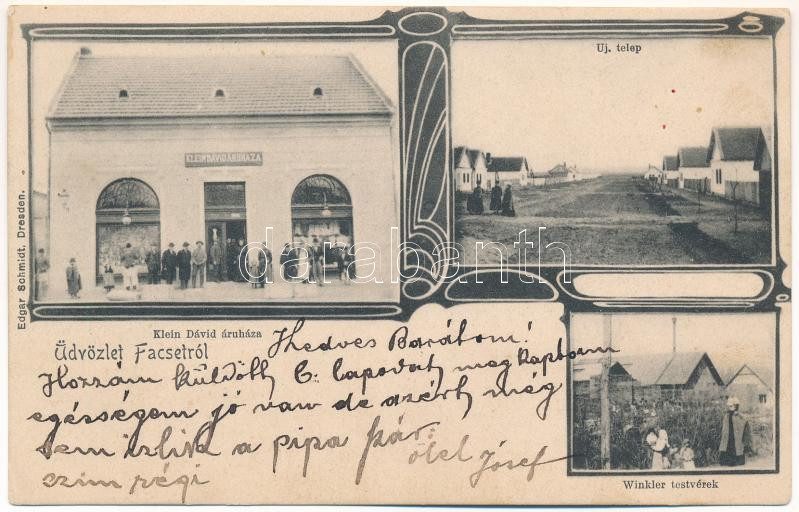 Uj. telep
KLEIN DÁVID ÁRUHÁZA
Edgar Schmidt, Dresden.
darabanth
Klein Dávid áruháza
Üdvözlet Facsetről
Hedves Barátom!
Hozzám küldött b. lapodat meg kaptam
egésségem jó van de azért még
sem izlik a pipa
ölel József
szim régi
Winkler testvérek